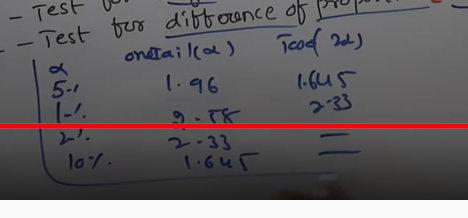 - Test
- Test for difference of propo
α onetail(α) Tcod(2α)
5.1. 1.96 1.645
1-1. 2.58 2.33
2.1. 2.33 =
10%. 1.645